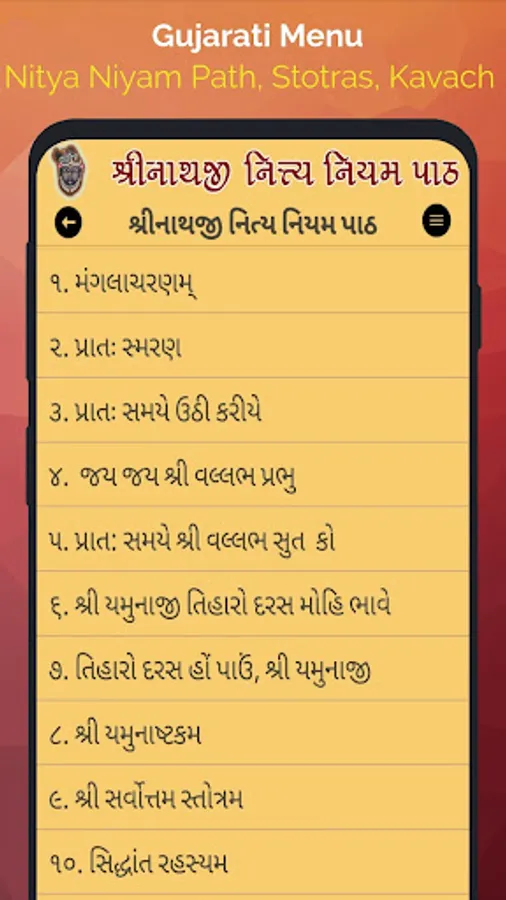 Gujarati Menu
Nitya Niyam Path, Stotras, Kavach
શ્રીનાથજી નિત્ય નિયમ પાઠ
શ્રીનાથજી નિત્ય નિયમ પાઠ
૧. મંગલાચરણમ્
૨. પ્રાતઃ સ્મરણ
૩. પ્રાતઃ સમયે ઉઠી કરીયે
૪. જય જય શ્રી વલ્લભ પ્રભુ
૫. પ્રાત: સમયે શ્રી વલ્લભ સુત કો
૬. શ્રી યમુનાજી તિહારો દરસ મોહિ ભાવે
૭. તિહારો દરસ હોં પાઉં, શ્રી યમુનાજી
૮. શ્રી યમુનાષ્ટકમ
૯. શ્રી સર્વોત્તમ સ્તોત્રમ
૧૦. સિદ્ધાંત રહસ્યમ